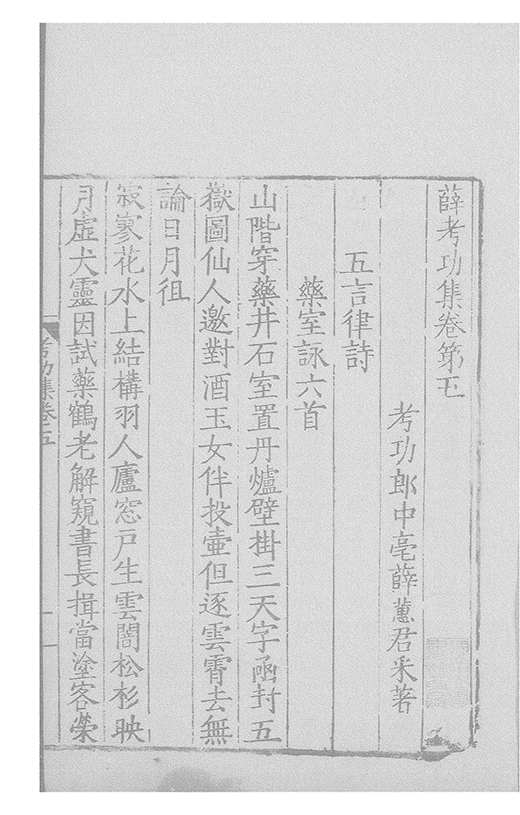 薛考功集卷第五
考功郎中亳薛蕙君采著
五言律詩
藥室詠六首
山階穿藥井石室置丹爐壁掛三天字函封五
嶽圖仙人邀對酒玉女伴投壺但逐雲霄去無
論日月徂
寂寥花水上結構羽人廬窓戸生雲闇松杉映
月虛犬靈因試藥鶴老解窺書長揖當塗客榮
考功集卷五